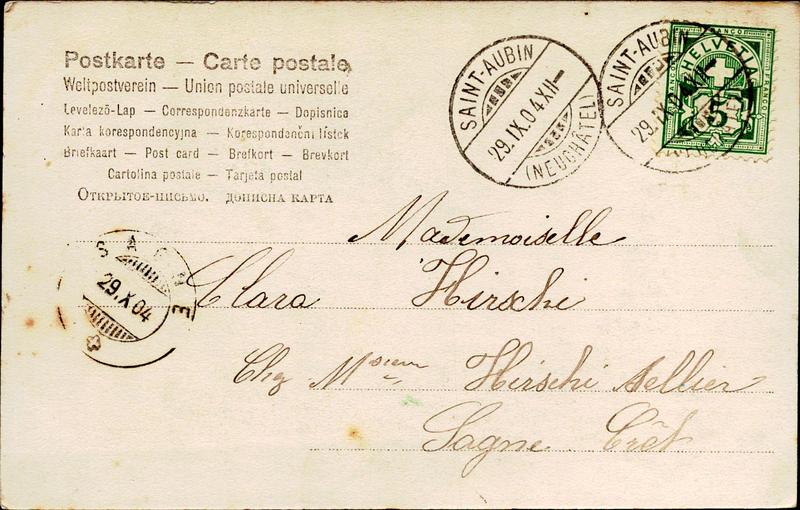 Postkarte — Carte postale
Weltpostverein — Union postale universelle
Levelező-Lap — Correspondenzkarte — Dopisnica
Karta korespondencyjna — Korespondenční lístek
Briefkaart — Post card — Brefkort — Brevkort
Cartolina postale — Tarjeta postal
Открытое-письмо. дописна карта
SAINT-AUBIN
29.IX.04.XII—
(NEUCHÂTEL)
SAINT-AUBIN
29.IX.04
HELVETIA
5
FRANCO
SAGNE
29.X.04
Mademoiselle
Clara Hirschi
Chez Monsieur Hirschi Sellier
Sagne Crêt